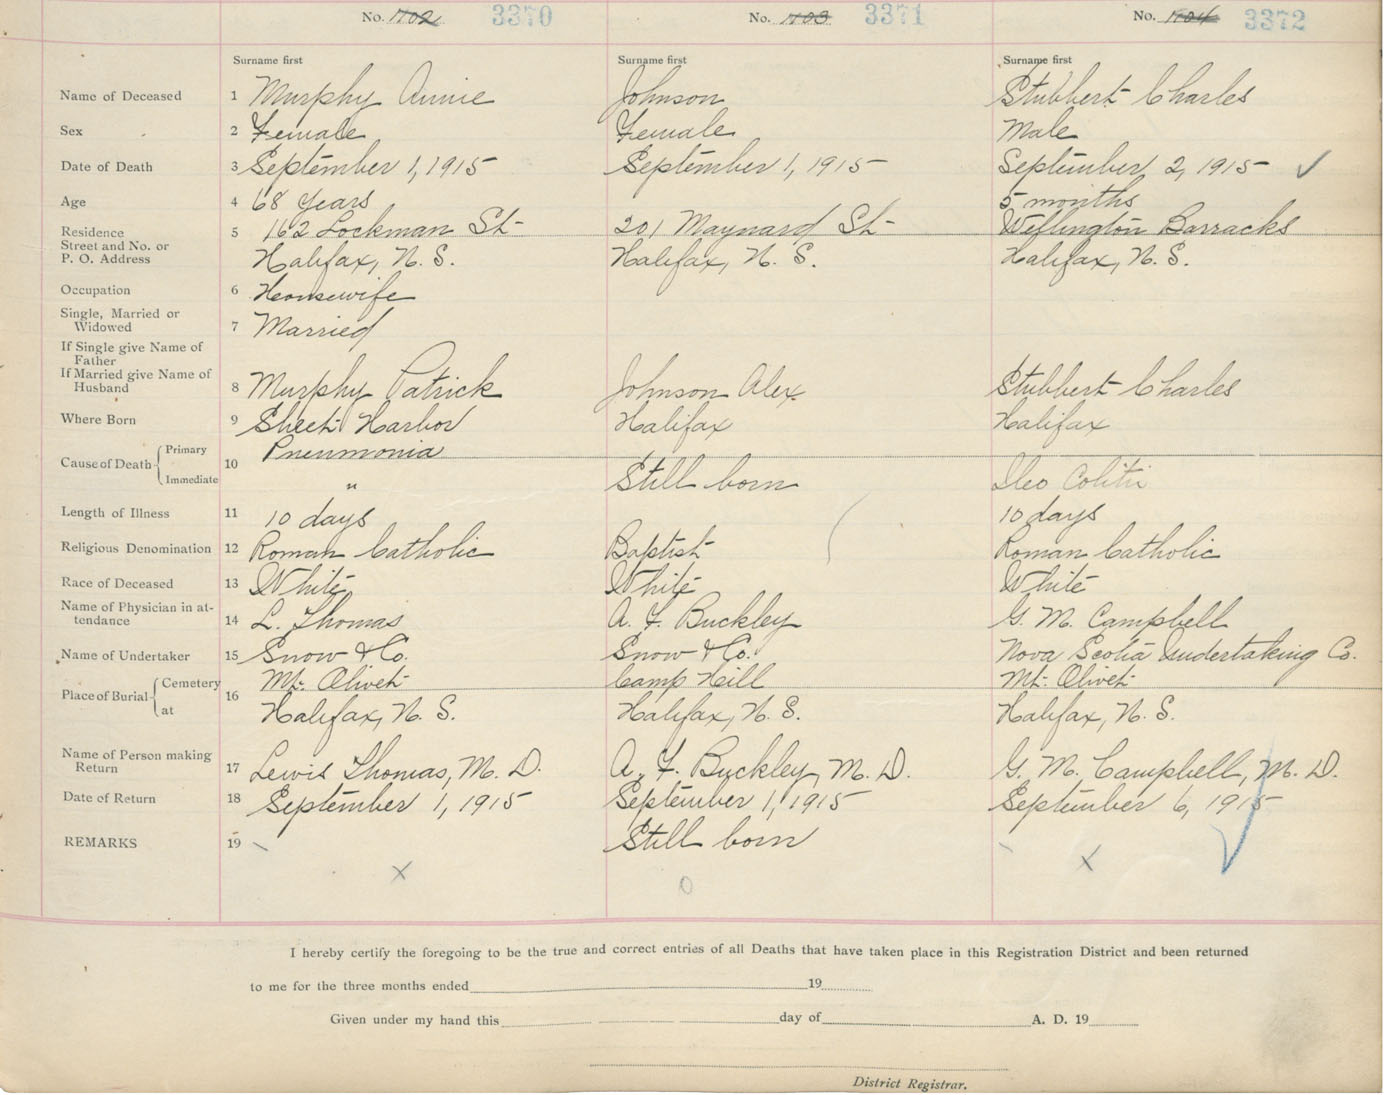 No. 1102 3370 No. 1103 3371 No. 1104 3372
Surname first Surname first Surname first
Name of Deceased 1 Murphy Annie Johnson Stubbert Charles
Sex 2 Female Female Male
Date of Death 3 September 1, 1915 September 1, 1915 September 2, 1915 ✓
Age 4 68 years 5 months
Residence 5 162 Lockman St- 201 Maynard St- Wellington Barracks
Street and No. or
P. O. Address Halifax, N. S. Halifax, N. S. Halifax, N. S.
Occupation 6 Housewife
Single, Married or
Widowed 7 Married
If Single give Name of
Father
If Married give Name of
Husband 8 Murphy Patrick Johnson Alex. Stubbert Charles
Where Born 9 Sheet Harbor Halifax Halifax
Cause of Death Primary 10 Pneumonia
Immediate " Still born Ileo Colitis
Length of Illness 11 10 days 10 days
Religious Denomination 12 Roman Catholic Baptist Roman Catholic
Race of Deceased 13 White White White
Name of Physician in at-
tendance 14 L. Thomas A. F. Buckley G. M. Campbell
Name of Undertaker 15 Snow & Co. Snow & Co. Nova Scotia Undertaking Co.
Place of Burial Cemetery 16 Mt. Olivet Camp Hill Mt. Olivet
at Halifax, N. S. Halifax, N. S. Halifax, N. S.
Name of Person making
Return 17 Lewis Thomas, M. D. A. F. Buckley, M. D. G. M. Campbell, M. D.
Date of Return 18 September 1, 1915 September 1, 1915 September 6, 1915
REMARKS 19 Still born
x 0 x
I hereby certify the foregoing to be the true and correct entries of all Deaths that have taken place in this Registration District and been returned
to me for the three months ended 19
Given under my hand this day of A. D. 19
District Registrar.